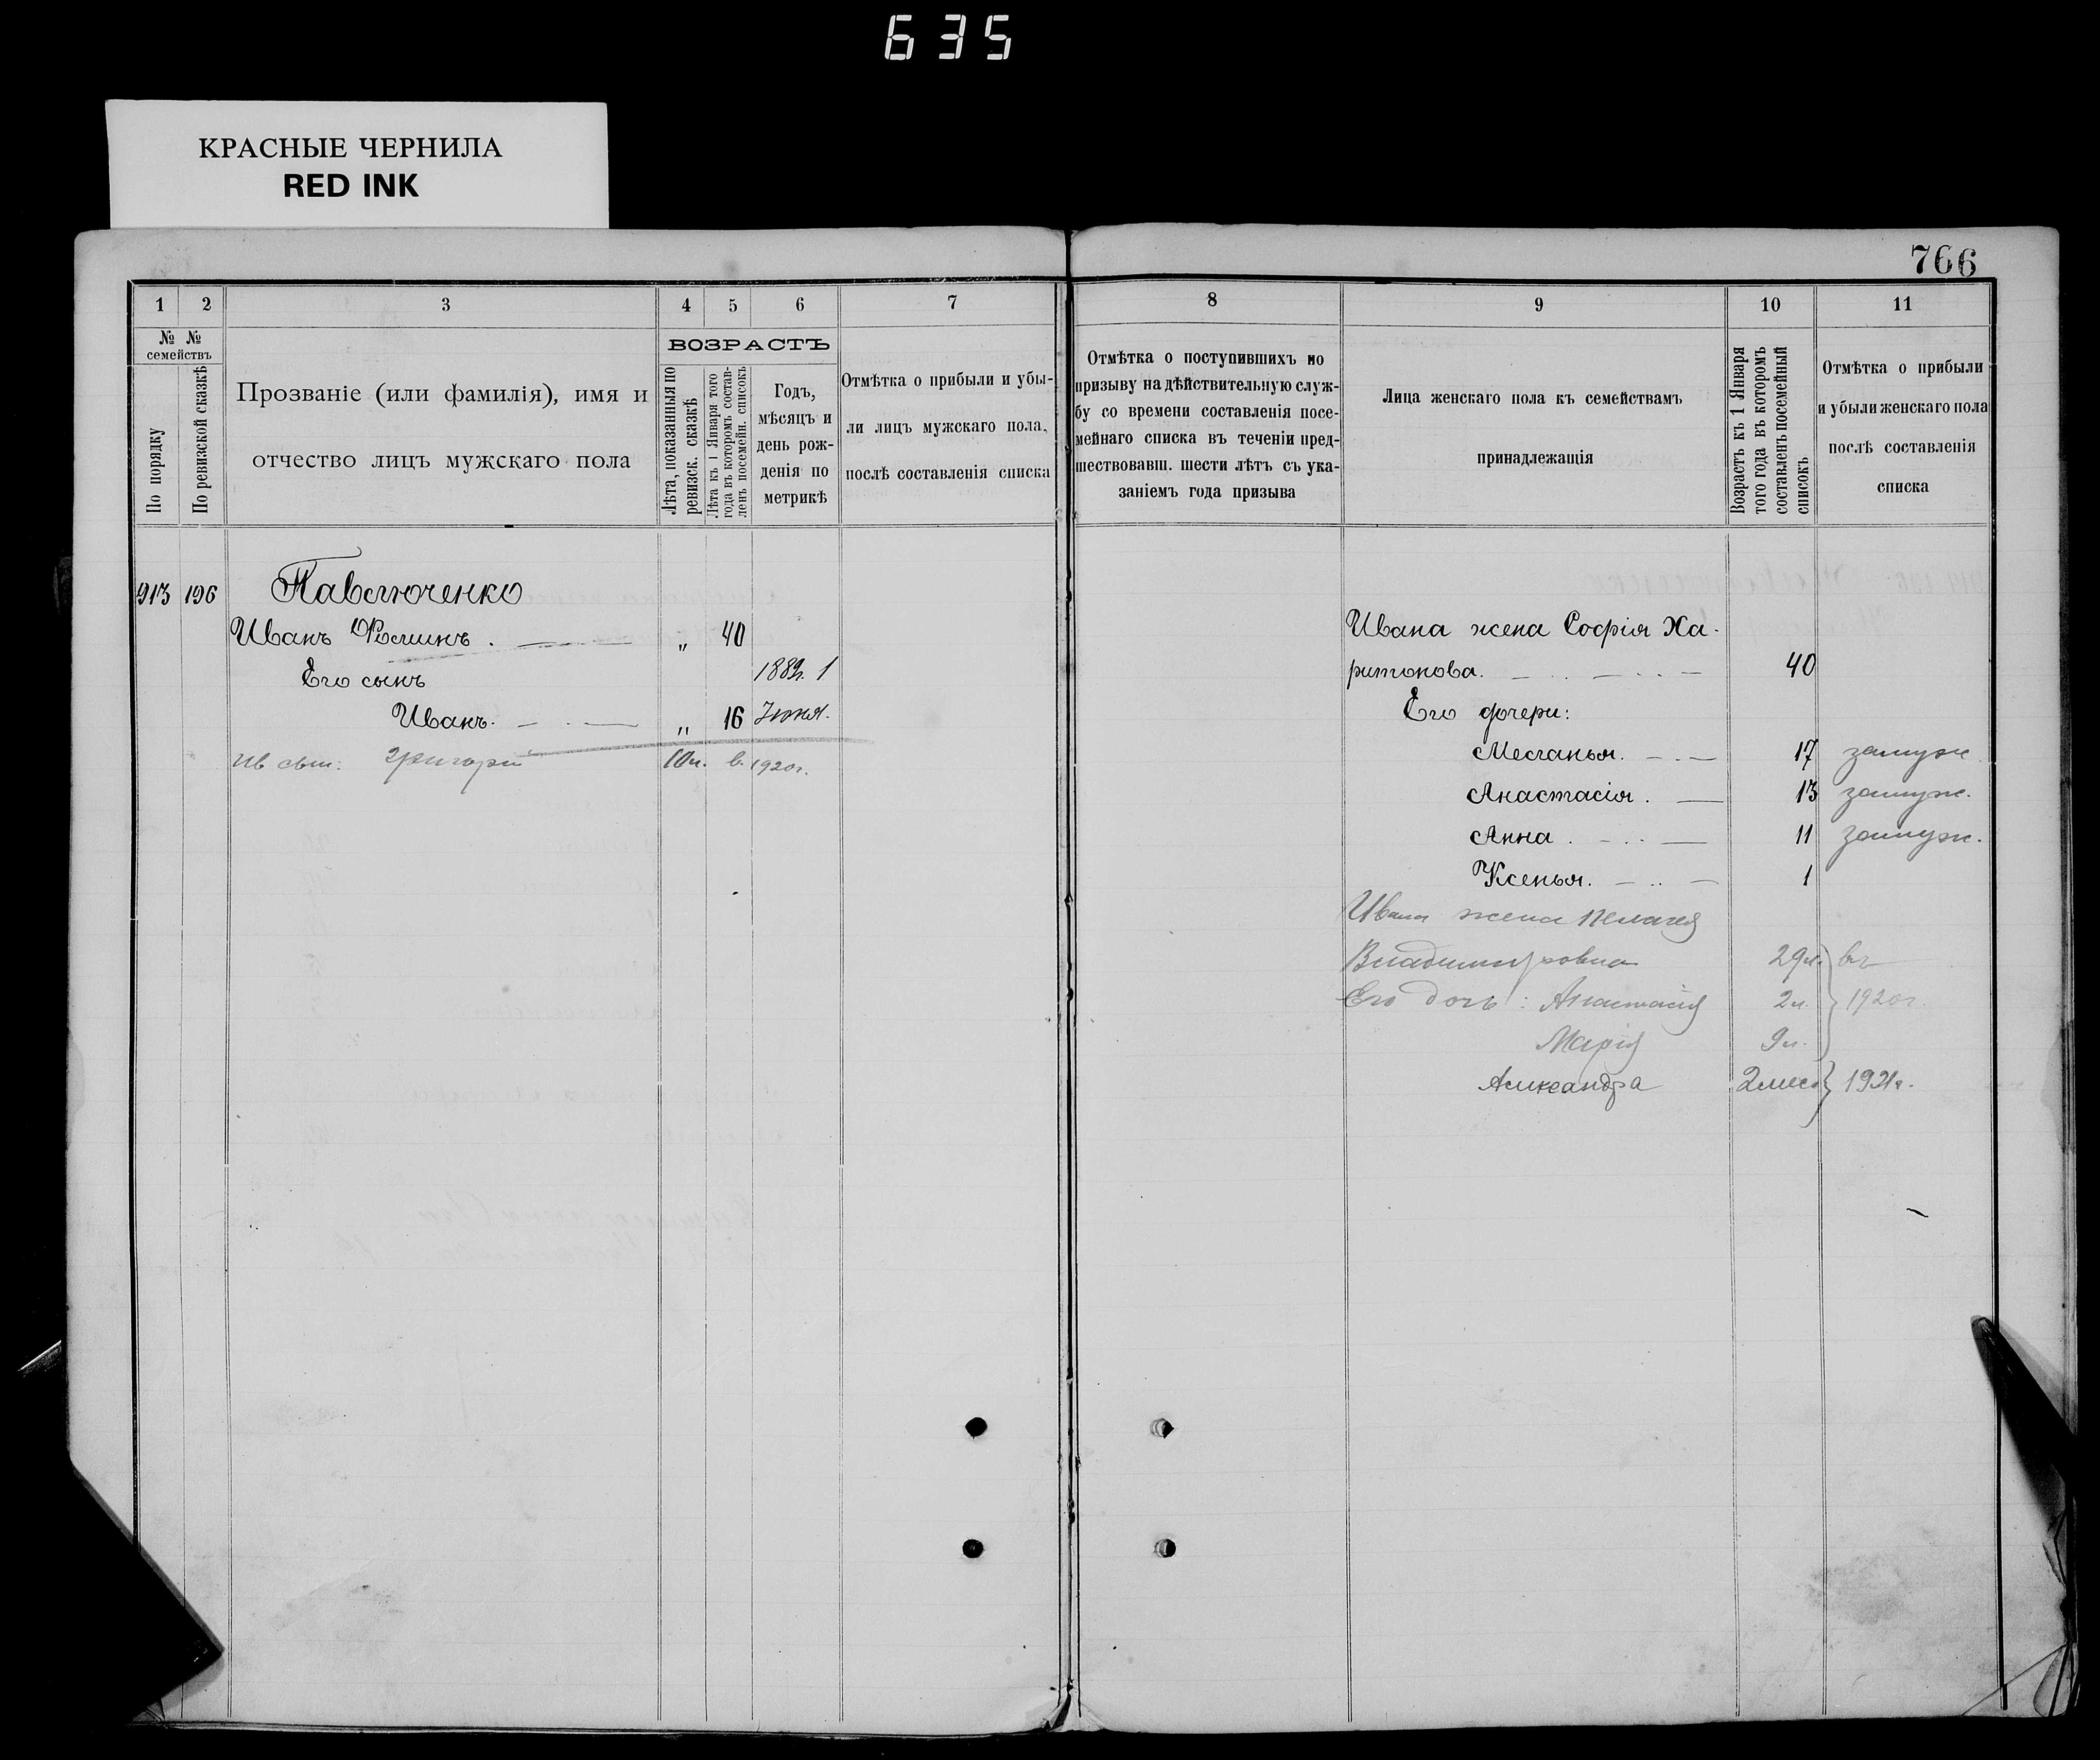 635
КРАСНЫЕ ЧЕРНИЛА
RED INK
766
1 2 3 4 5 6 7 8 9 10 11
№ № семействъ
По порядку
По ревизской сказкѣ
Прозваніе (или фамилія), имя и
отчество лицъ мужскаго пола
ВОЗРАСТЪ
Лѣта, показанныя по
ревизск. сказкѣ
Лѣта къ 1 Января того
года въ которомъ состав-
ленъ посемейн. списокъ
Годъ,
мѣсяцъ и
день рож-
денія по
метрикѣ
Отмѣтка о прибыли и убы-
ли лицъ мужскаго пола,
послѣ составленія списка
Отмѣтка о поступившихъ по
призыву на дѣйствительную служ-
бу со времени составленія посе-
мейнаго списка въ теченіи пред-
шествовавш. шести лѣтъ съ ука-
заніемъ года призыва
Лица женскаго пола къ семействамъ
принадлежащія
Возрастъ къ 1 Января
того года въ которомъ
составленъ посемейный
списокъ
Отмѣтка о прибыли
и убыли женскаго пола
послѣ составленія
списка
913 196 Павлюченко
Иванъ Ѳоминъ. „ 40
Его сынъ 1889г. 1
Иванъ. „ 16 Іюня.
Григорій 10л. в 1920г.
Ивана жена Софія Ха-
ритонова. 40
Его дочери:
Меланья. 17 замуж.
Анастасія. 13 замуж.
Анна. 11 замуж.
Ксенья. 1
Ивана жена Пелагея
Владимировна 29л. } вг
Его дочь: Анастасія 2л. } 1920г.
Марія 9л.
Александра 2мес } 1921г.